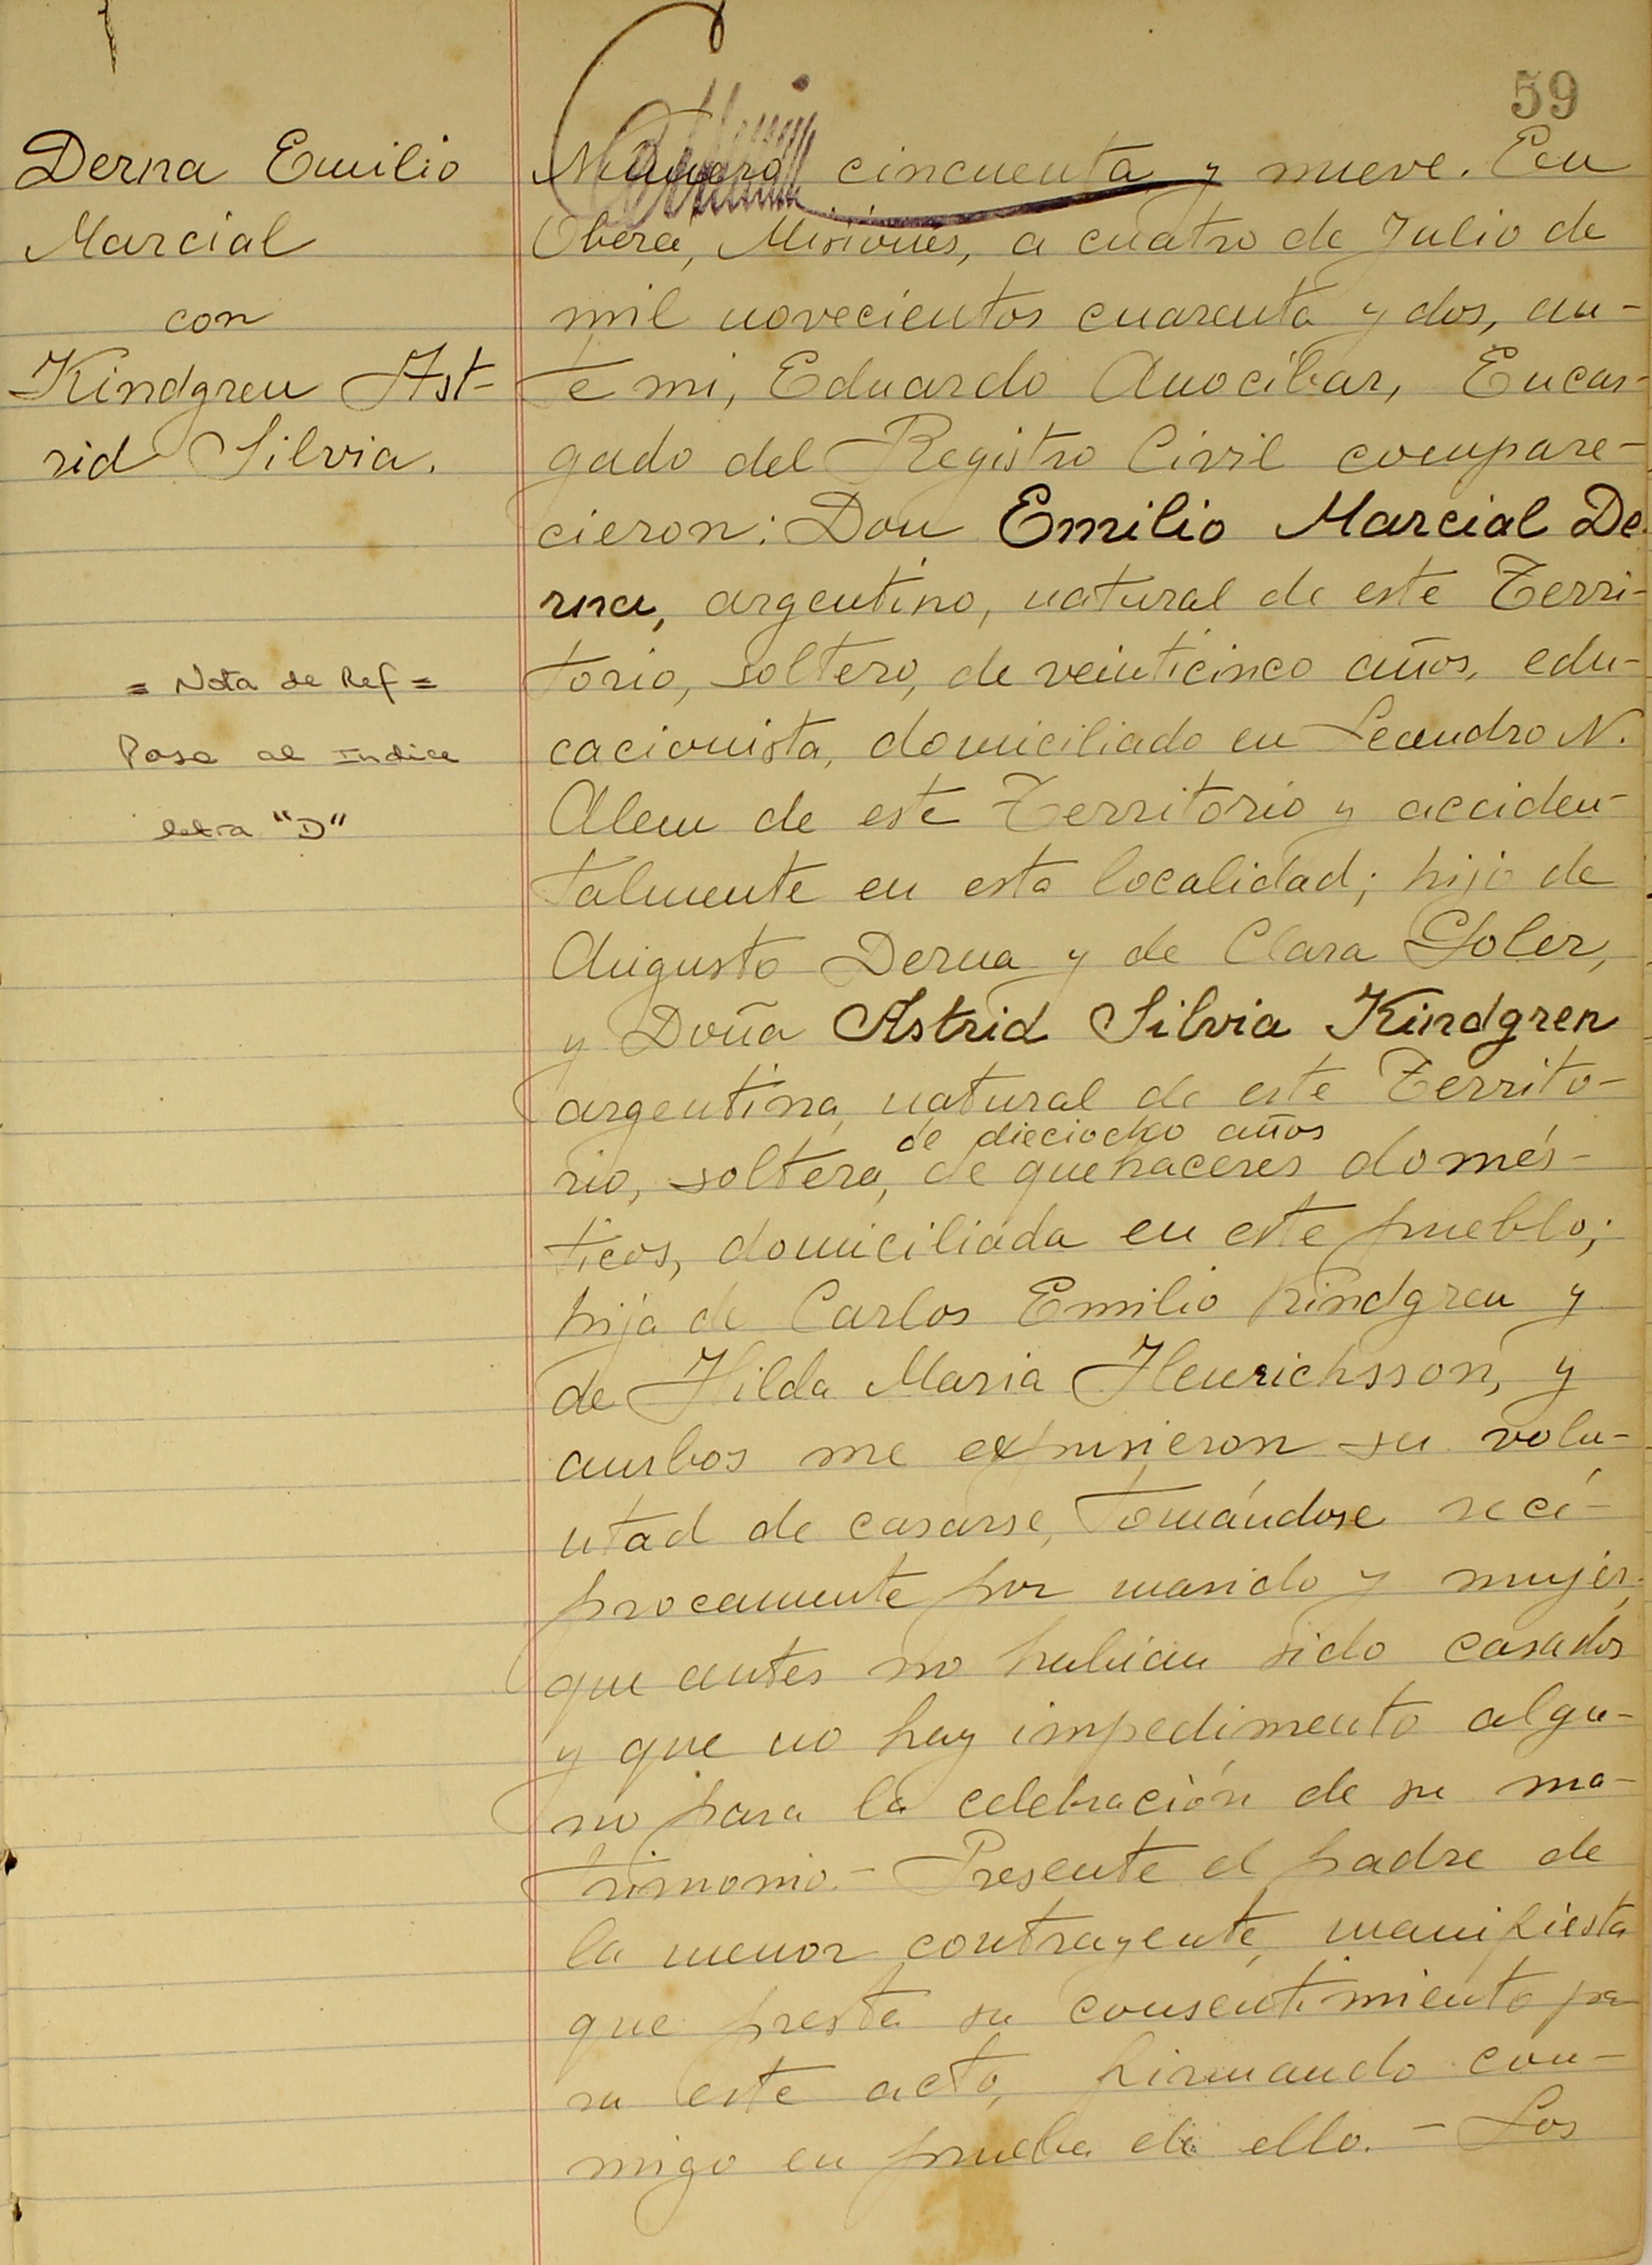 59
Derna Emilio
Marcial
con
Kindgren Ast-
rid Silvia.
= Nota de Ref =
Pasa al Indice
letra "D"
Número cincuenta y nueve. En
Oberá, Misiones, a cuatro de Julio de
mil novecientos cuarenta y dos, an-
te mi, Eduardo Anocibar, Encar-
gado del Registro Civil compare-
cieron: Don Emilio Marcial De-
rna, argentino, natural de este Terri-
torio, soltero, de veinticinco años, edu-
cacionista, domiciliado en Leandro N.
Alem de este Territorio y acciden-
talmente en esta localidad; hijo de
Augusto Derna y de Clara Goler,
y Doña Astrid Silvia Kindgren
argentina, natural de este Territo-
de dieciocho años
rio, soltera, de quehaceres domés-
ticos, domiciliada en este pueblo;
hija de Carlos Emilio Kindgren y
de Hilda Maria Henrichsson, y
ambos me expusieron su volu-
ntad de casarse, tomándose recí-
procamente por marido y mujer,
que antes no habian sido casados
y que no hay impedimento algu-
no para la celebración de su ma-
trimonio. - Presente el padre de
la menor contrayente, manifiesta
que presta su consentimiento pa
ra este acto, firmando con-
migo en prueba de ello. - Los